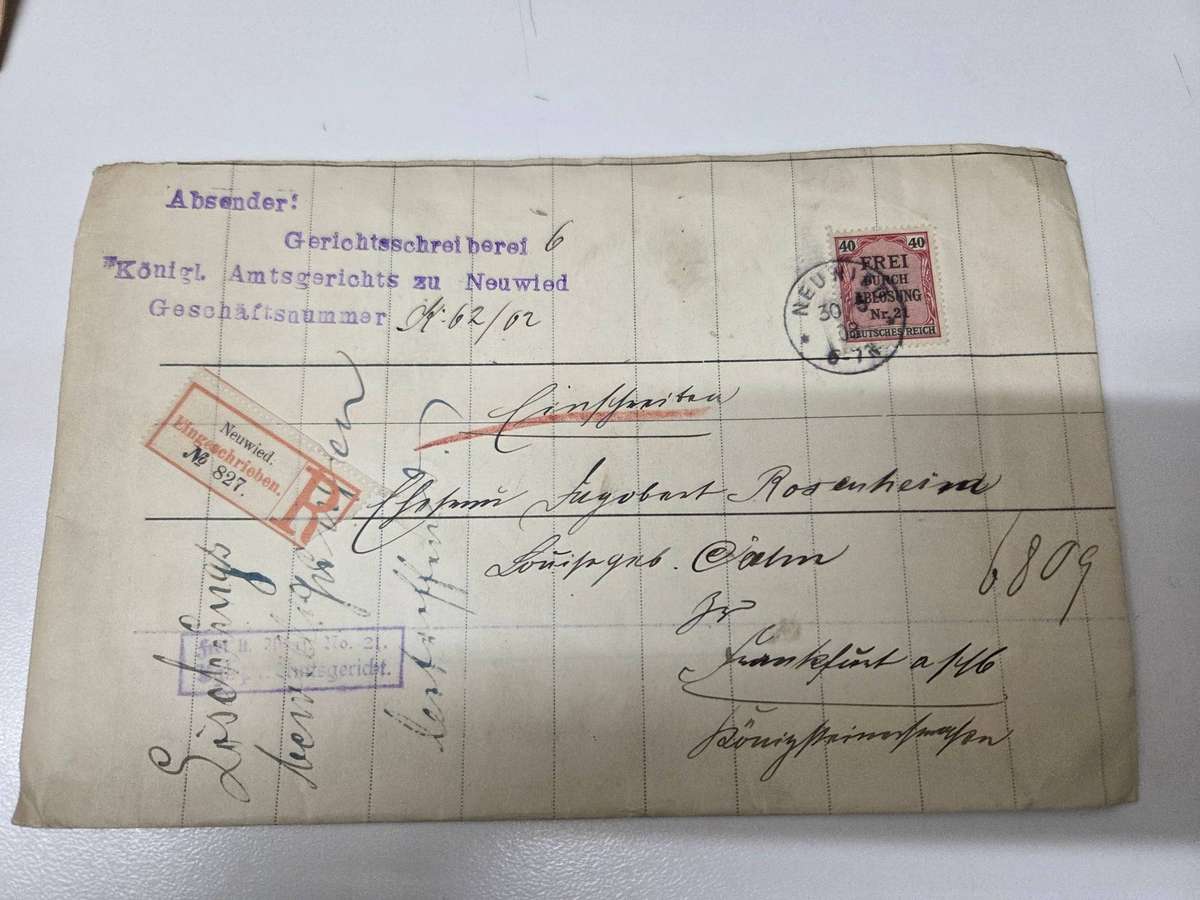 Absender:
Gerichtsschreiberei 6
Königl. Amtsgerichts zu Neuwied
Geschäftsnummer K. 62/02
40 40
FREI
DURCH
ABLÖSUNG
Nr. 21
DEUTSCHES REICH
NEUWIED
30
6-7
Einschreiben
Neuwied.
Eingeschrieben.
№ 827.
R
Ehefrau Dagobert Rosenheim
Louise geb.
zu
Frankfurt a/M
Königsteinerstrassen
6809
Löschungs
No. 21.
Amtsgericht.